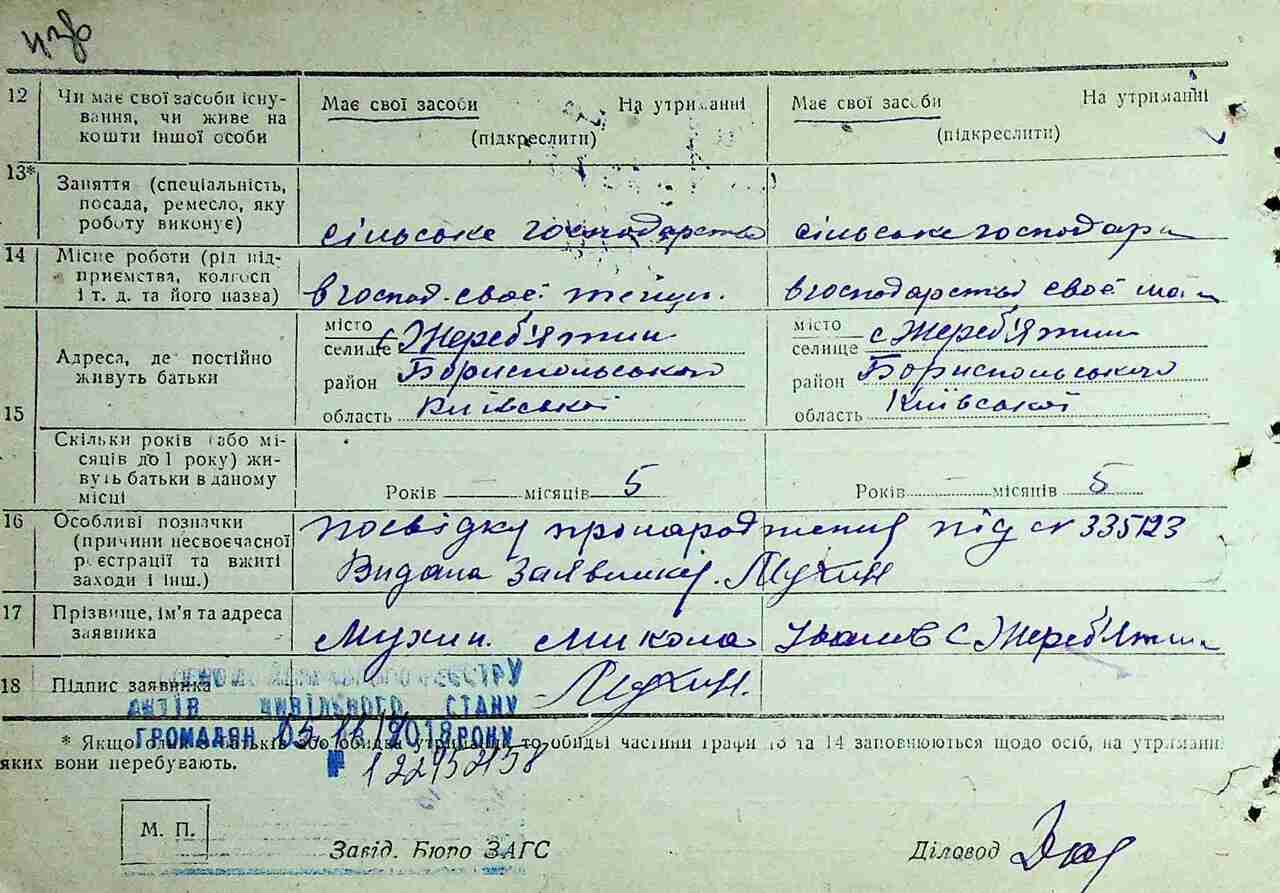 12 Чи має свої засоби існу-
вання, чи живе на
кошти іншої особи
Має свої засоби На утриманні
(підкреслити)
Має свої засоби На утриманні
(підкреслити)
13* Заняття (спеціальність,
посада, ремесло, яку
роботу виконує)
сільське господарство
сільське господар
14 Місце роботи (рід під-
приємства, колгосп
і т. д. та його назва)
в господ. своєї
в господарстві своє
15 Адреса, де постійно
живуть батьки
місто
селище с Жереб'ятин
район Бориспольського
область Київської
місто
селище с Жереб'ятин
район Бориспольського
область Київської
Скільки років (або мі-
сяців до 1 року) жи-
вуть батьки в даному
місці
Років місяців 5
Років місяців 5
16 Особливі позначки
(причини несвоєчасної
реєстрації та вжиті
заходи і інш.)
посвідку про народження під № 335123
Видана заявнику. Мухин
17 Прізвище, ім'я та адреса
заявника
Мухин. Микола Іванов с Жереб'ятин
18 Підпис заявника
Мухин.
АКТІВ ЦИВІЛЬНОГО СТАНУ
ГРОМАДЯН 05.11.2018 РОКУ
* Якщо або обидва то обидві частини графи 13 та 14 заповнюються щодо осіб, на утриманні
яких вони перебувають.
№ 12292138
М. П.
Завід. Бюро ЗАГС
Діловод